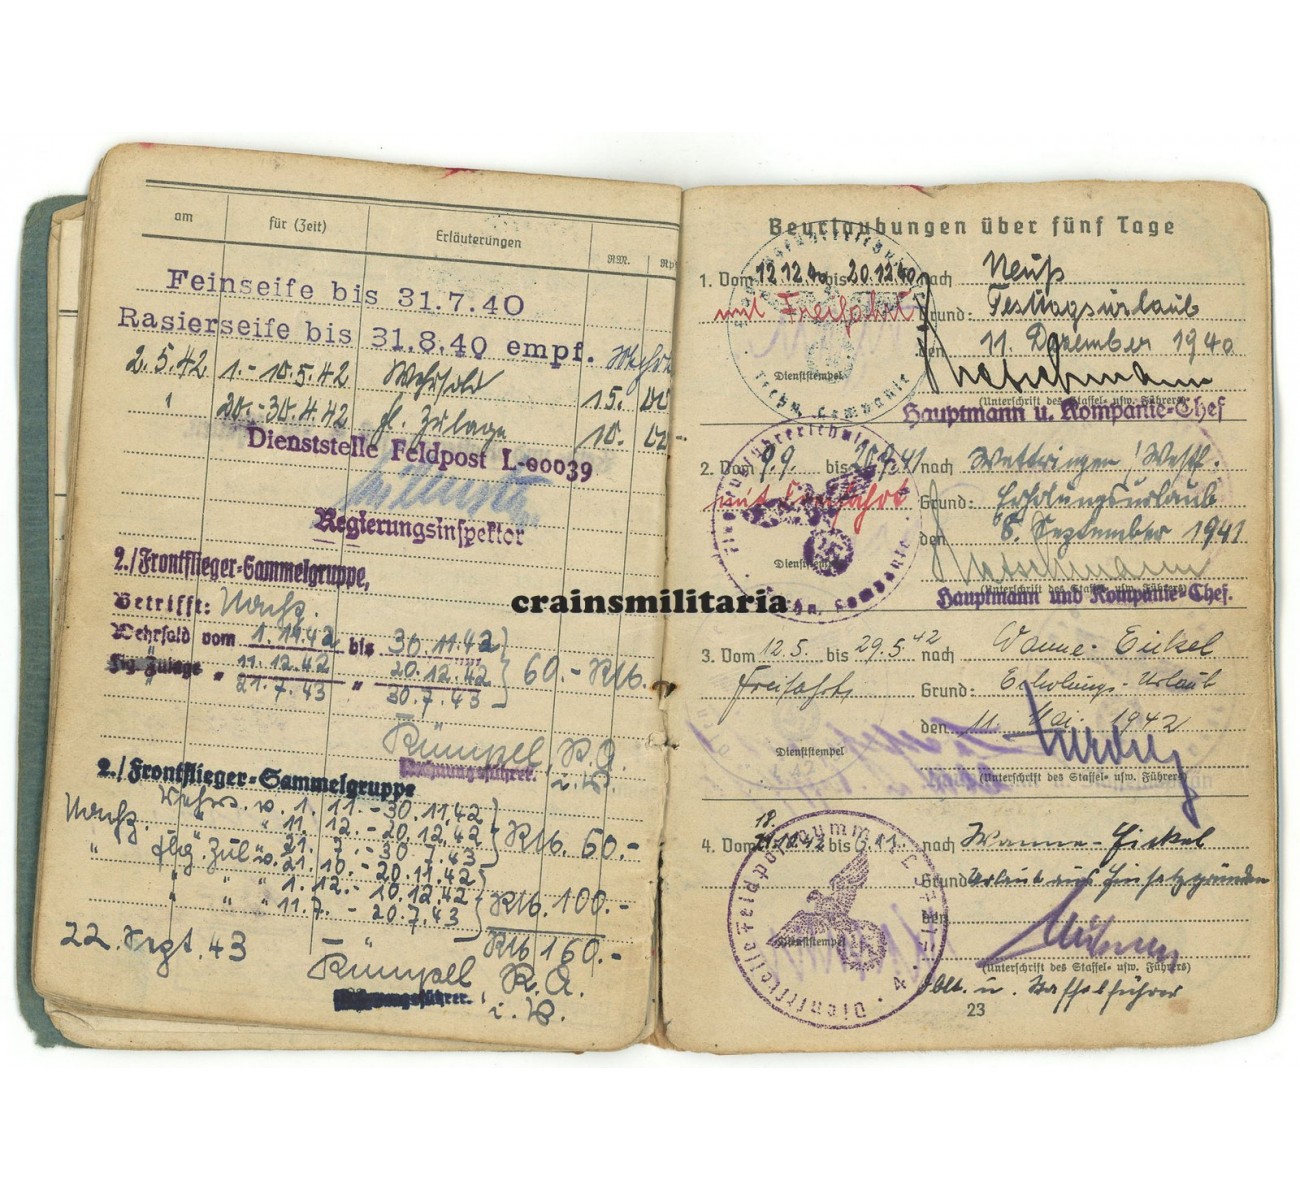 am für (Zeit) Erläuterungen RM.
Feinseife bis 31.7.40
Rasierseife bis 31.8.40 empf.
2.5.42 1.-10.5.42 Wehrsold 15. 00
" 20.-30.4.42 fl. Zulage 10. 00-
Dienststelle Feldpost L-00039
Regierungsinspektor
2./Frontflieger-Sammelgruppe,
Betrifft: Nachz.
Wehrsold vom 1.11.42 bis 30.11.42
Flg. Zulage " 11.12.42 " 20.12.42 60.- RM.
" 21.7.43 30.7.43
Rümpel, R.A.
Rechnungsführer. i.V.
2./Frontflieger-Sammelgruppe
Nachz. Wehrs. v. 1.11.-30.11.42
" " 11.12.-20.12.42 RM. 60.-
21.7.-30.7.43
" flg. Zul. v. 21.10.-20.11.42
" " " 1.12.-10.12.42 RM. 100.-
" 11.7.-20.7.43
22. Sept. 43 RM 160.-
Rümpel R.A.
Rechnungsführer. i.V.
Beurlaubungen über fünf Tage
1. Vom 12.12.40 bis 20.12.40 nach Neuß
mit Freifahrt Grund: Festtagsurlaub
den 11. Dezember 1940
Dienststempel
(Unterschrift des Staffel- usw. Führers)
Hauptmann u. Kompanie-Chef
Techn. Kompanie
2. Vom 9.9. bis 20.9.41 nach Wettringen/Westf.
mit Freifahrt Grund: Erholungsurlaub
den 6. September 1941
Dienststempel
Hauptmann und Kompanie-Chef.
Techn. Kompanie
crainsmilitaria
3. Vom 12.5. bis 29.5.42 nach Wanne-Eickel
Freifahrt Grund: Erholungs-Urlaub
den 11. Mai 1942
Dienststempel
(Unterschrift des Staffel- usw. Führers)
18.
4. Vom 21.10.42 bis 6.11. nach Wanne-Eickel
Grund Urlaub aus Einsatzgründen
den
Dienststempel
Dienststelle Feldpostnummer
(Unterschrift des Staffel- usw. Führers)
Oblt. u. Staffelführer
23